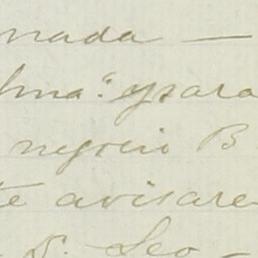 nada —
lma" y para
negocio B
te avisare
D. Leo